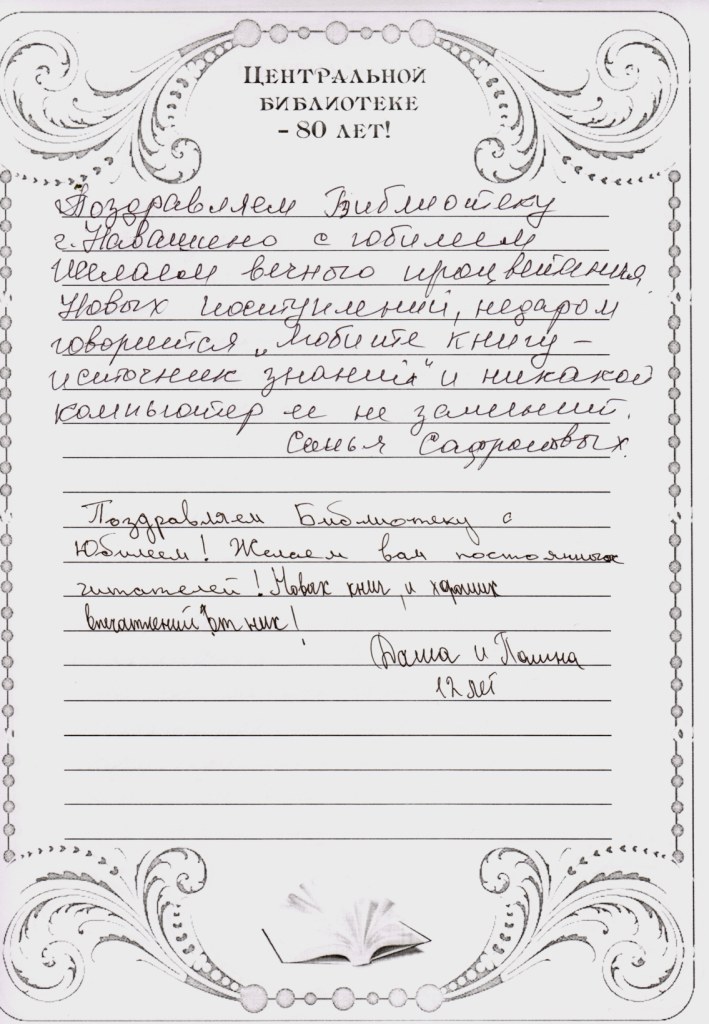 Центральной
библиотеке
- 80 лет!
Поздравляем Библиотеку
г. Навашино с юбилеем
Желаем вечного процветания,
Новых поступлений, недаром
говорится „Любите книгу –
источник знаний“ и никакой
компьютер ее не заменит.
Семья Сафроновых.
Поздравляем Библиотеку с
Юбилеем! Желаем вам постоянных
читателей! Новых книг, и хороших
впечатлений от них!
Даша и Полина
12 лет